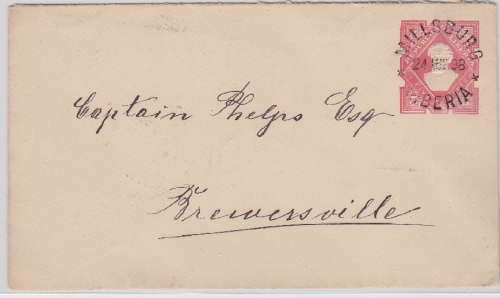 MILLSBURG
LIBERIA
Captain Phelps Esq
Brewersville